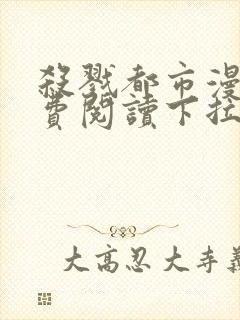 殺戮都市漫
費閱讀下拉
大高忍大寺義